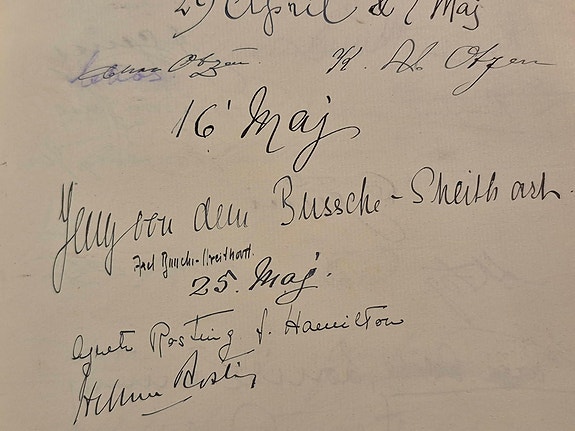 29 April & 1 Maj
Otzen. K. Otzen
16' Maj
Jenny von dem Bussche-Streithorst
Axel Bussche-Streithorst.
25. Maj.
Agnete Rosting f. Hamilton
Helmer Rosting